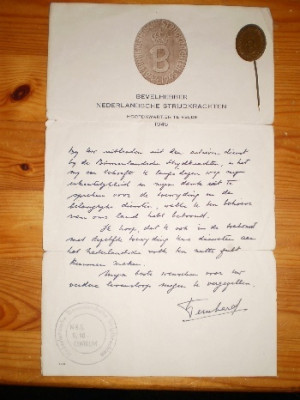 B
BEVELHEBBER
NEDERLANDSCHE STRIJDKRACHTEN
HOOFDKWARTIER
1945
Bij het verlaten van den actieven dienst
bij de Binnenlandsche Strijdkrachten, is het
mij een behoefte langs dezen weg mijn
erkentelijkheid en mijn dank uit te
spreken voor de toewijding en de
belangrijke diensten, welke U ten behoeve
van ons land hebt betoond.
Ik hoop, dat U ook in de toekomst
met dezelfde toewijding Uw diensten aan
het Vaderland zult ten nutte
kunnen maken.
Mijn beste wenschen voor Uw
verdere levensloop mogen U vergezellen.
Bernhard